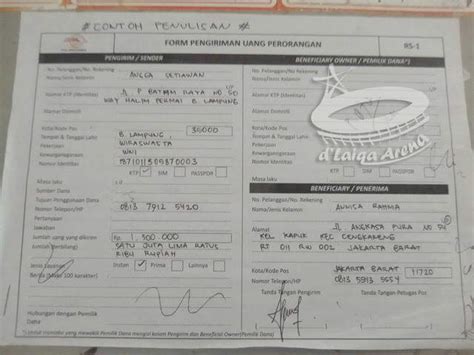 # CONTOH PENULISAN #
FORM PENGIRIMAN UANG PERORANGAN
RS-1
PENGIRIM / SENDER
No. Pelanggan/No. Rekening
Nama/Jenis Kelamin
ANGGA SETIAWAN
LP
Alamat KTP (Identitas)
JL P BATAM RAYA NO 50
WAY HALIM PERMAI B. LAMPUNG
Alamat Domisili
Kota/Kode Pos
B. LAMPUNG
35000
Tempat & Tanggal Lahir
B. LAMPUNG,
Pekerjaan
WIRASWASTA
Kewarganegaraan
WNI
Nomor Identitas
1871011509870003
KTP
SIM
PASSPOR
Masa laku
Sumber Dana
Tujuan Penggunaan Dana
Nomor Telepon/HP
0813 7912 5420
Pertanyaan
Jawaban
Jumlah uang yang dikirim
Rp
1.500.000
Jumlah (Terbilang)
SATU JUTA LIMA RATUS
RIBU RUPIAH
Jenis Layanan
Instan
Prima
Lainnya
Berita (Maks 100 karakter)
Hubungan dengan Pemilik
Dana
BENEFICIARY OWNER / PEMILIK DANA*)
No. Pelanggan/No. Rekening
Nama/Jenis Kelamin
Alamat KTP (Identitas)
Alamat Domisili
Kota/Kode Pos
Tempat & Tanggal Lahir
Pekerjaan
Kewarganegaraan
Nomor Identitas
KTP
SIM
PASSPOR
Masa laku
d'Laiqa Arena
BENEFICIARY / PENERIMA
No. Pelanggan/No. Rekening
Nama/Jenis Kelamin
ANNISA RAHMA
LP
Alamat
JL ANGKASA PURA NO 50
KEL KAPUK KEC CENGKARENG
RT 011 RW 002 JAKARTA BARAT
Kota/Kode Pos
JAKARTA BARAT
11720
Nomor Telepon/HP
0813 5913 5554
Tanda Tangan Pengirim
Tanda Tangan Petugas Pos
*) Untuk transaksi yang mewakili Pemilik Dana mengisi kolom Pengirim dan Beneficial Owner(Pemilik Dana)